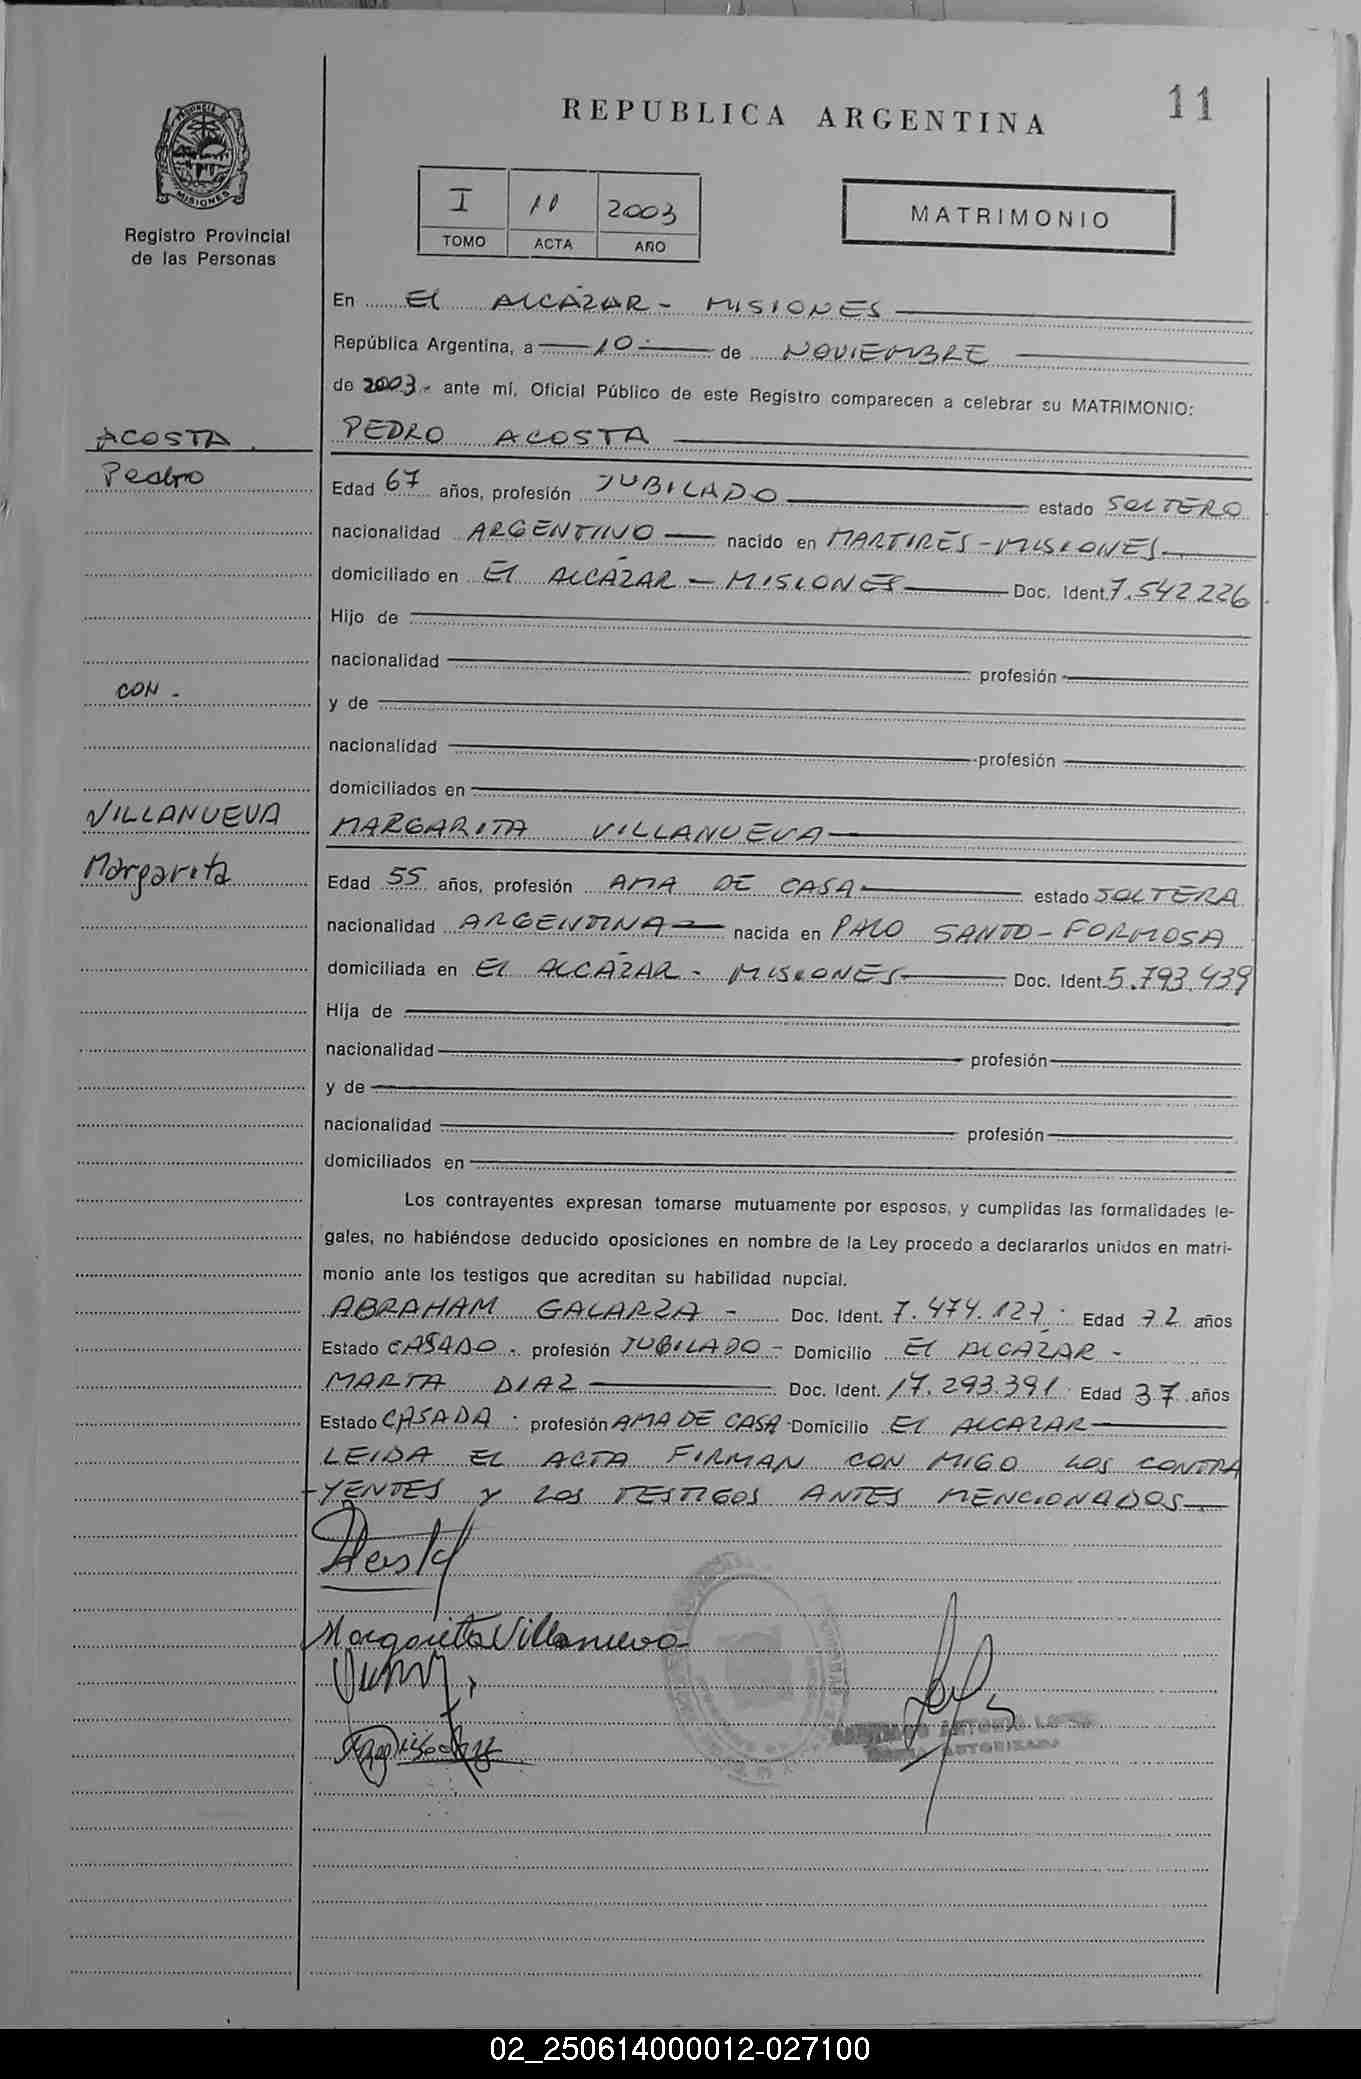 11
REPUBLICA ARGENTINA
PROVINCIA DE
MISIONES
Registro Provincial
de las Personas
I 11 2003
TOMO ACTA AÑO
MATRIMONIO
En El ALCÁZAR - MISIONES
República Argentina, a 10 de NOVIEMBRE
de 2003 - ante mí, Oficial Público de este Registro comparecen a celebrar su MATRIMONIO:
ACOSTA
PEDRO ACOSTA
Pedro
Edad 67 años, profesión JUBILADO estado SOLTERO
nacionalidad ARGENTINO nacido en MARTIRES - MISIONES
domiciliado en El ALCÁZAR - MISIONES Doc. Ident. 7.542.226
Hijo de
nacionalidad profesión
CON -
y de
nacionalidad profesión
domiciliados en
VILLANUEVA
MARGARITA VILLANUEVA
Margarita
Edad 55 años, profesión AMA DE CASA estado SOLTERA
nacionalidad ARGENTINA nacida en PALO SANTO - FORMOSA
domiciliada en El ALCÁZAR - MISIONES Doc. Ident. 5.793.439
Hija de
nacionalidad profesión
y de
nacionalidad profesión
domiciliados en
Los contrayentes expresan tomarse mutuamente por esposos, y cumplidas las formalidades le-
gales, no habiéndose deducido oposiciones en nombre de la Ley procedo a declararlos unidos en matri-
monio ante los testigos que acreditan su habilidad nupcial.
ABRAHAM GALARZA - Doc. Ident. 7.474.127 Edad 72 años
Estado CASADO - profesión JUBILADO - Domicilio El ALCÁZAR -
MARTA DIAZ Doc. Ident. 17.293.391 Edad 37 años
Estado CASADA profesión AMA DE CASA Domicilio El ALCAZAR
LEIDA EL ACTA FIRMAN CON MIGO LOS CONTRA
-YENTES y LOS TESTIGOS ANTES MENCIONADOS
Margarita Villanueva
ANTONIO
02_250614000012-027100